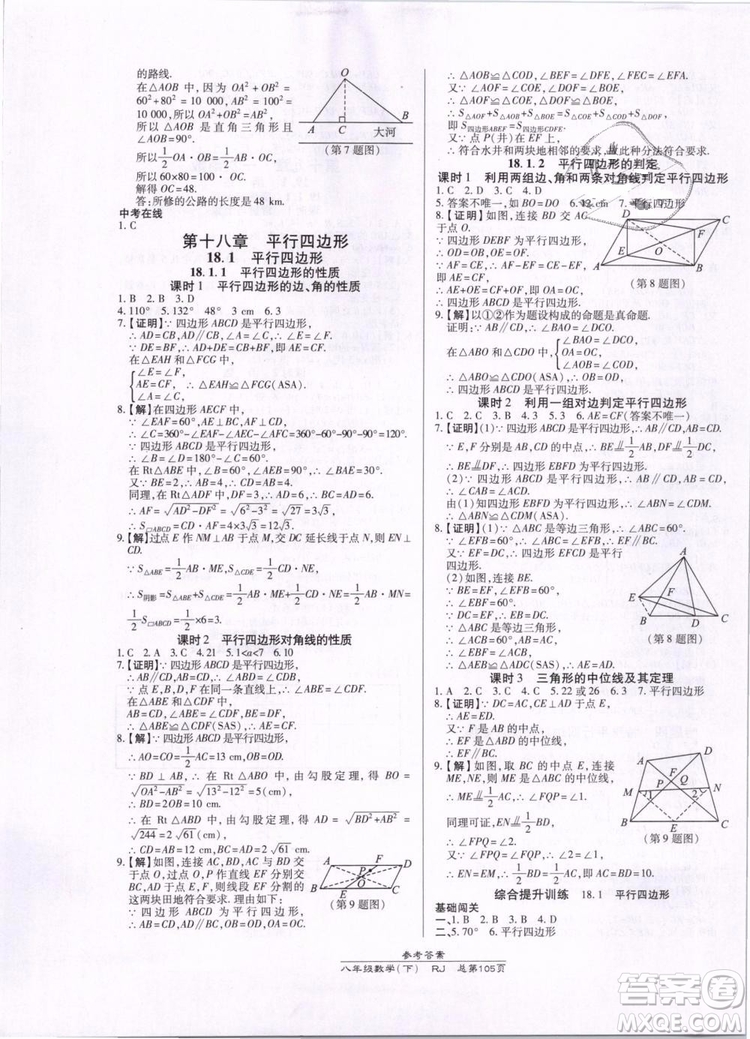 的路线.
在△AOB 中，因为 OA² + OB² =
60² + 80² = 10 000，AB² = 100² =
10 000，所以 OA² + OB² = AB².
所以 △AOB 是直角三角形且
∠AOB = 90°.
所以 1/2 OA · OB = 1/2 AB · OC.
解得 OC=48.
答：所修的公路的长度是 48 km.
O
A
C
B
大河
(第 7 题图)
中考在线
1. C
第十八章 平行四边形
18.1 平行四边形
18.1.1 平行四边形的性质
课时 1 平行四边形的边、角的性质
1. B 2. B 3. D
4. 110° 5. 132° 48° 3 cm 6. 3
7.【证明】∵ 四边形 ABCD 是平行四边形，
∴ AD=CB，AD∥CB，∠A=∠C.
∴ ∠E=∠F.
∵ DE=BF，∴ AD+DE=CB+BF，即 AE=CF.
在△EAH 和△FCG 中，
∠E=∠F，
AE=CF，
∠A=∠C，
∴ △EAH≌△FCG(ASA).
8.【解】在四边形 AECF 中，
∵ ∠EAF=60°，AE⊥BC，AF⊥CD，
∴ ∠C=360°-∠EAF-∠AEC-∠AFC=360°-60°-90°-90°=120°.
∵ 四边形 ABCD 是平行四边形，
∴ ∠B=180°-∠C=60°.
在 Rt△ABE 中，∠BAE=90°-∠B=30°.
又∵ BE=2，∴ AB=2BE=4.
同理，在 Rt△ADF 中，DF=3，∴ AD=6.
∴ AF=√(AD²-DF²)=√(6²-3²)=√27=3√3.
∴ S▱ABCD=CD·AF=4×3√3=12√3.
9.【解】过点 E 作 NM⊥AB 于点 M，交 DC 延长线于点 N，∵ AB∥CD，∴ EN⊥
CD.
∵ S△ABE=1/2 AB·ME，S△CDE=1/2 CD·NE，
∴ S阴影=S△ABE+S△CDE=1/2 AB·ME+1/2 CD·NE=1/2 AB·MN=
1/2 S▱ABCD=1/2×6=3.
课时 2 平行四边形对角线的性质
1. C 2. A 3. C 4. 21 5. 1<a<7 6. 10
7.【证明】∵ 四边形 ABCD 是平行四边形，
∴ AB∥CD，AB=CD.
∵ 点 E，B，D，F 在同一条直线上，∴ ∠ABE=∠CDF.
在△ABE 和△CDF 中，
AB=CD，∠ABE=∠CDF，BE=DF，
∴ △ABE≌△CDF(SAS)，∴ AE=CF.
8.【解】∵ 四边形 ABCD 是平行四边形，
∴ AO=CO=1/2 AC=13 cm，BO=DO.
∵ BD⊥AB，∴ 在 Rt△ABO 中，由勾股定理，得 BO=
√(OA²-AB²)=√(13²-12²)=5(cm)，
∴ BD=2BO=10 cm.
∴ 在 Rt△ABD 中，由勾股定理，得 AD=√(BD²+AB²)=
√244=2√61(cm)，∴ BC=AD=2√61(cm).
9.【解】如图，连接 AC，BD，AC 与 BD 交于
点 O，过点 O，P 作直线 EF 分别交 AB 于
点 E，交 CD 于点 F，则线段 EF 分割的这
两块田地符合要求. 理由如下：
∵ 四边形 ABCD 是平行四边形，
∴ OA=OC，OB=OD，AB∥CD.
D
F
C
P
O
A
E
B
(第 9 题图)
∴ △AOB≌△COD，∠BEF=∠DFE，∠FEC=∠EFA.
又∵ ∠AOE=∠COF，∴ △AOE≌△COF.
∴ S△AOF+S△AOB+S△BOE=S△COE+S△COD+S△DOF，
即 S四边形ABEF=S四边形DCEF.
又∵ 点 P(井)在 EF 上，
∴ 符合水井和两块地相邻的要求，故此种分法符合要求.
18.1.2 平行四边形的判定
课时 1 利用两组边、角和两条对角线判定平行四边形
1. C 2. D 3. D 4. D
5. 答案不唯一，如 BO=DO 6. 12 cm 7. 平行四边形
8.【证明】如图，连接 BD 交 AC
于点 O.
∵ 四边形 DEBF 为平行四边形，
∴ OD=OB，OE=OF.
∵ AF=CE，∴ AF-EF=CE-EF，即 AE=CF.
∴ AE+OE=CF+OF，即 OA=OC.
∴ 四边形 ABCD 是平行四边形.
D
C
F
O
E
A
B
(第 8 题图)
9.【解】以①②作为题设构成的命题是真命题.
证明：∵ AB∥CD，∴ ∠BAO=∠DCO，∠ABO=∠CDO.
在△ABO 和△CDO 中，
∠BAO=∠DCO，
AO=CO，
∠AOB=∠COD，
∴ △ABO≌△CDO(ASA)，∴ OB=OD.
∴ 四边形 ABCD 是平行四边形.
课时 2 利用一组对边判定平行四边形
1. C 2. C 3. B 4. 3 5. 3 6. AE=CF(答案不唯一)
7.【证明】(1)∵ 四边形 ABCD 是平行四边形，∴ AB∥CD.
∵ E，F 分别是 AB，CD 的中点，∴ BE∥1/2 AB，DF∥1/2 CD.
∴ BE∥DF，∴ 四边形 EBFD 为平行四边形.
(2)∵ 四边形 ABCD 为平行四边形，
∴ AB∥CD，AB=CD，∴ ∠BAM=∠DCN.
由(1)知四边形 EBFD 为平行四边形，∴ ∠ABN=∠CDM.
∴ △ABN≌△CDM(ASA).
8.【证明】(1)∵ △ABC 是等边三角形，∴ ∠ABC=60°.
∵ ∠EFB=60°，∴ ∠ABC=∠EFB，
∴ EF∥BC.
又∵ DC=EF，∴ 四边形 EFCD 是平
行四边形.
(2)如图，连接 BE.
∵ ∠EFB=60°，BF=EF，
∴ △BEF 为等边三角形，
∴ BE=BF=EF，∠ABE=60°.
∵ DC=EF，∴ BE=DC.
∵ △ABC 是等边三角形，∴ ∠ACB=60°，AB=AC，
∴ ∠ABE=∠ACD，∴ △ABE≌△ACD(SAS)，∴ AE=AD.
A
F
B
D
C
E
(第 8 题图)
课时 3 三角形的中位线及其定理
1. A 2. C 3. C 4. C 5. 22 或 26 6. 3 7. 平行四边形
8.【证明】∵ DC=AC，CE⊥AD，∴ 点 E 为 AD 的中点.
又∵ F 是 AB 的中点，
∴ EF 是△ABD 的中位线，
∴ EF∥BC.
9.【解】如图，取 BC 的中点 E，连接
ME，NE，则 ME 是△ABC 的中位线，
∴ ME∥1/2 AC，∴ ∠EMN=∠PQF.
同理可证，EN∥1/2 BD，∠ENM=∠FPQ.
∵ ∠FPQ=∠FQP，∴ ∠EMN=∠ENM.
∴ EN=EM=1/2 AC，即 AC=BD，∴ BD=10.
A
D
F
P
Q
M
1
2
N
B
E
C
(第 9 题图)
综合提升训练 18.1 平行四边形
基础闯关
一、1. B 2. B 3. D 4. D
二、5. 70° 6. 平行四边形
参考答案
八年级数学(下) RJ 总第105页
答案圈
MXQE.COM